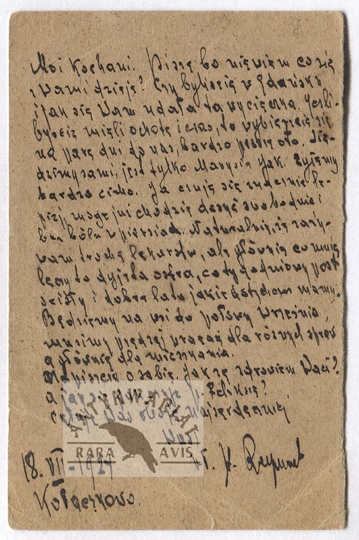 Moi Kochani. Piszę bo nie wiem co się
z Wami dzieje? Czy byliście w Gdańsku
i jak się Wam udała ta wycieczka. Jeśli
byście mieli ochotę i czas, to wybierzcie się
na parę dni do nas, bardzo prosto.
jest tylko Marysia jak żyjemy
bardzo cicho. Ja czuję się znacznie le-
piej, mogę już chodzić dosyć swobodnie i
bez bólu w piersiach. Naturalnie, że zaży-
wam trochę lekarstw, ale głównie co mnie
leczy to dyjeta ostra, cotygodniowy post
ścisły i dobre lato jakie dotychczas mamy.
Będziemy na wsi do połowy września,
musimy prędzej wracać dla różnych spraw
a głównie dla mieszkania.
Napiszcie o sobie. Jak ze zdrowiem Was?
a
całuję Was najserdeczniej
Wasz
18. VII
ANTYKWARIAT
RARA AVIS